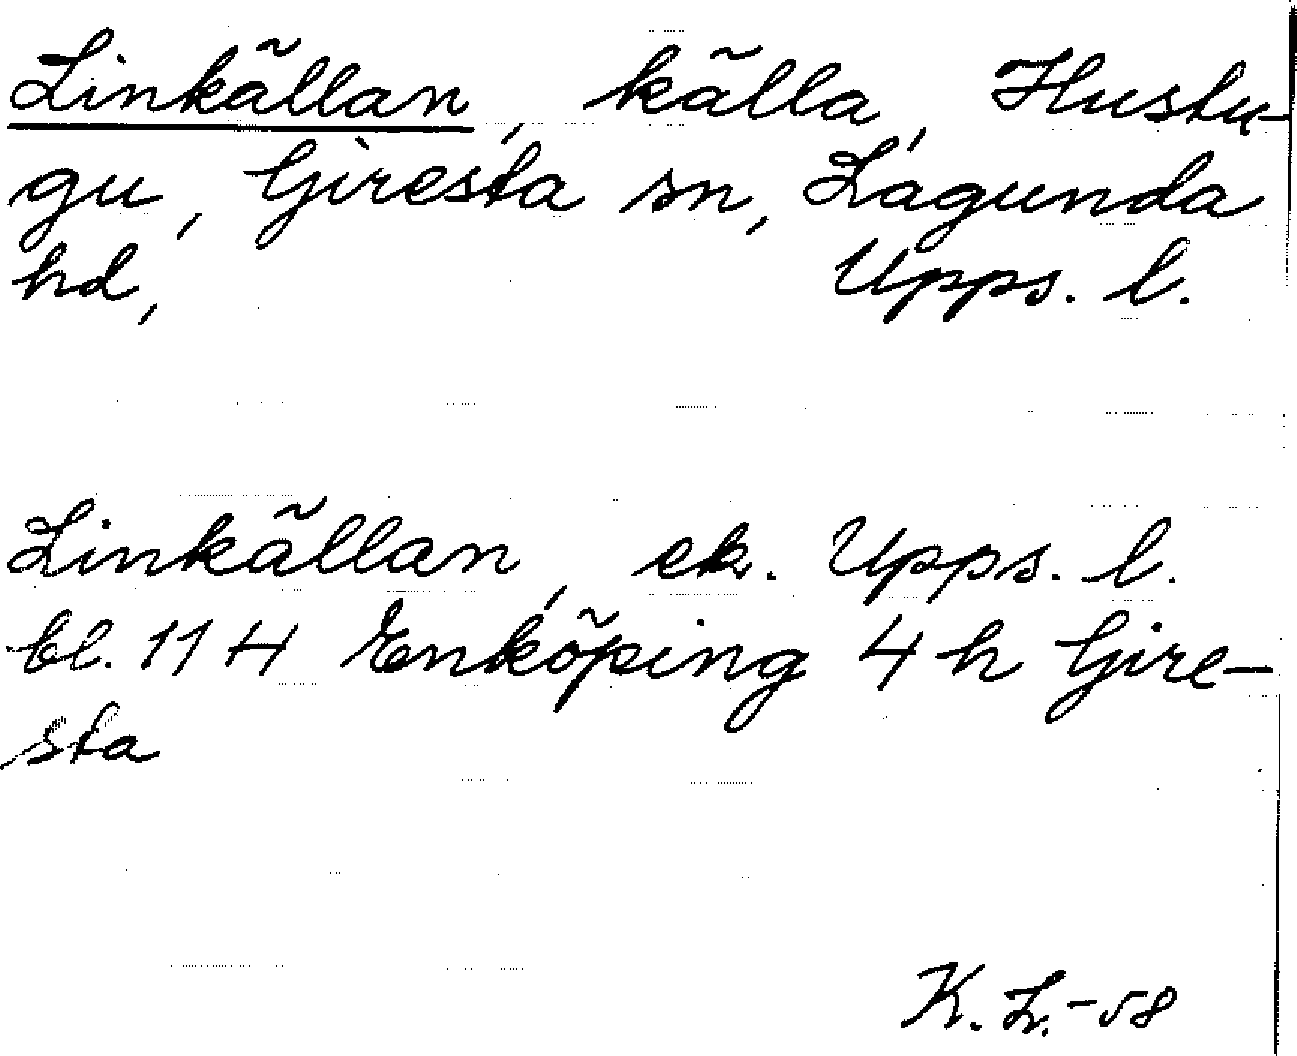 Linkällan, källa, Hustu-
gu, Giresta sn, Lagunda
hd, Upps. l.
Linkällan, ek. Upps. l.
bl. 11 H Enköping 4 h Gire-
sta
K. L. -58